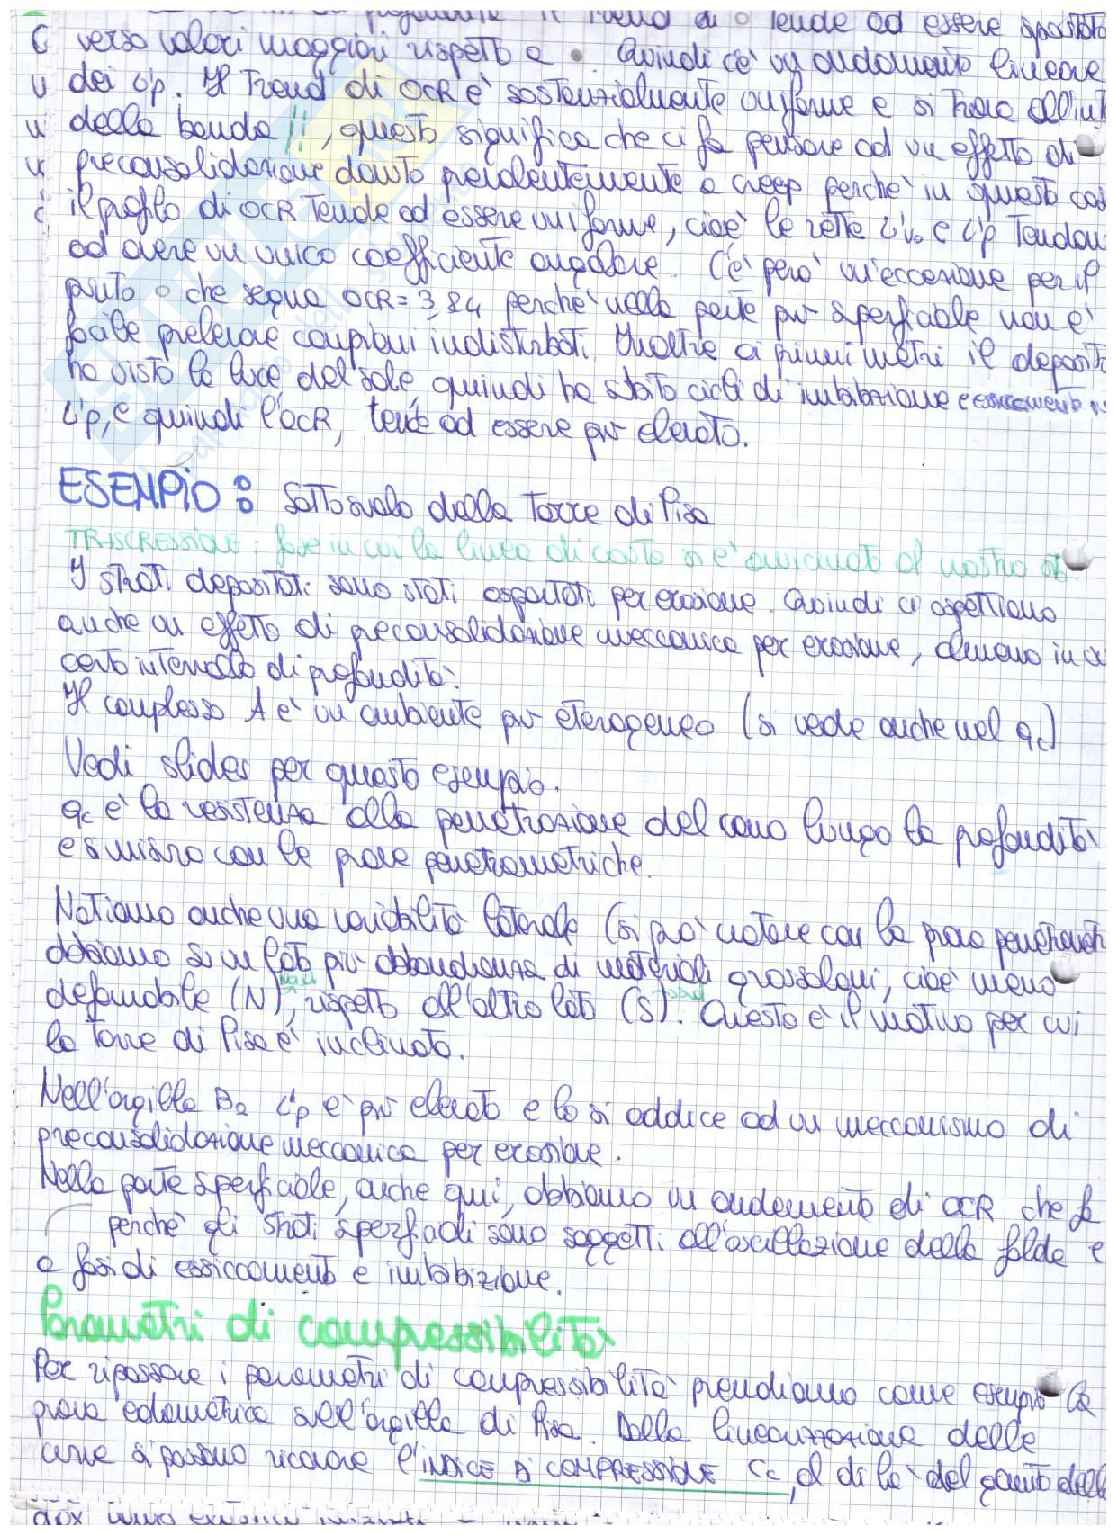 tende ad essere spostato
verso valori maggiori rispetto a •. Quindi c'è un andamento lineare
dei σ'p. Il Trend di OCR è sostanzialmente uniforme e si trova all'int
della banda //, questo significa che ci fa pensare ad un effetto di
preconsolidazione dovuto prevalentemente a creep perchè in questo cas
il profilo di OCR Tende ad essere uniforme, cioè le rette σ'v₀ e σ'p Tendon
ad avere un unico coefficiente angolare. C'è però un'eccezione per il
punto o che segna OCR = 3,84 perchè nella parte più superficiale non è
facile prelevare campioni indisturbati. Inoltre ai primi metri il deposito
ha visto la luce del sole, quindi ha subito cicli di imbibizione e essiccamento
σ'p, e quindi l'OCR, tende ad essere più elevato.
ESEMPIO: Sottosuolo della Torre di Pisa
fase in cui la linea di costa si è avvicinata al nostro
I strati depositati sono stati asportati per erosione. Quindi ci aspettiamo
anche un effetto di preconsolidazione meccanica per erosione, almeno in
certo intervallo di profondità.
Il complesso A è un ambiente più eterogeneo (si vede anche nel qc)
Vedi slides per questo esempio.
qc è la resistenza alla penetrazione del cono lungo la profondità
e si misura con le prove penetrometriche.
Notiamo anche una variabilità laterale (si può notare con la prova penetromet
abbiamo su un lato più abbondanza di materiali grossolani, cioè meno
deformabile (N), rispetto all'altro lato (S). Questo è il motivo per cui
la Torre di Pisa è inclinata.
Nell'argilla B₂ σ'p è più elevato e lo si addice ad un meccanismo di
preconsolidazione meccanica per erosione.
Nella parte superficiale, anche qui, abbiamo un andamento di OCR che
perchè gli strati superficiali sono soggetti all'oscillazione della falda e
a fasi di essiccamento e imbibizione.
Parametri di compressibilità
Per ripassare i parametri di compressibilità prendiamo come esempio la
prova edometrica sull'argilla di Pisa. Dalla linearizzazione delle
curve si possono ricavare l'INDICE DI COMPRESSIONE Cc, al di là del